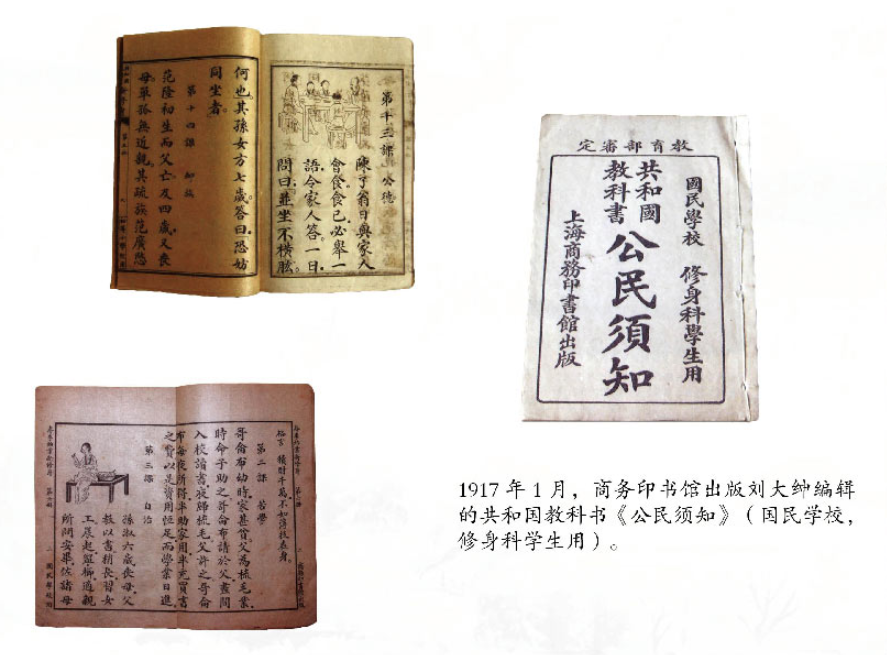 第十三課 公德
陳了翁日與家人
會食食已必舉一
語令家人答一日
問曰並坐不橫肱
何也其孫女方七歲答曰恐妨
同坐者
第十四課 卹族
范隆初生而父亡及四歲又喪
母單孤無近親其疏族范廣愍
教育部審定
國民學校 修身科學生用
共和國
教科書
公民須知
上海商務印書館出版
格言 積財千萬不如薄技在身
第二課 苦學
哥侖布幼時家甚貧父為梳毛業
時命子助之哥侖布請於父晝間
入校讀書夜歸梳毛父許之哥侖
布每夜所得半助家用半充買書
之費以是資用恒足而學業日進
第三課 自治
孫淑六歲喪母父
教以書稍長習女
工晨起盥櫛適親
所問安畢佐諸母
1917 年 1 月，商务印书馆出版刘大绅编辑
的共和国教科书《公民须知》（国民学校，
修身科学生用）。